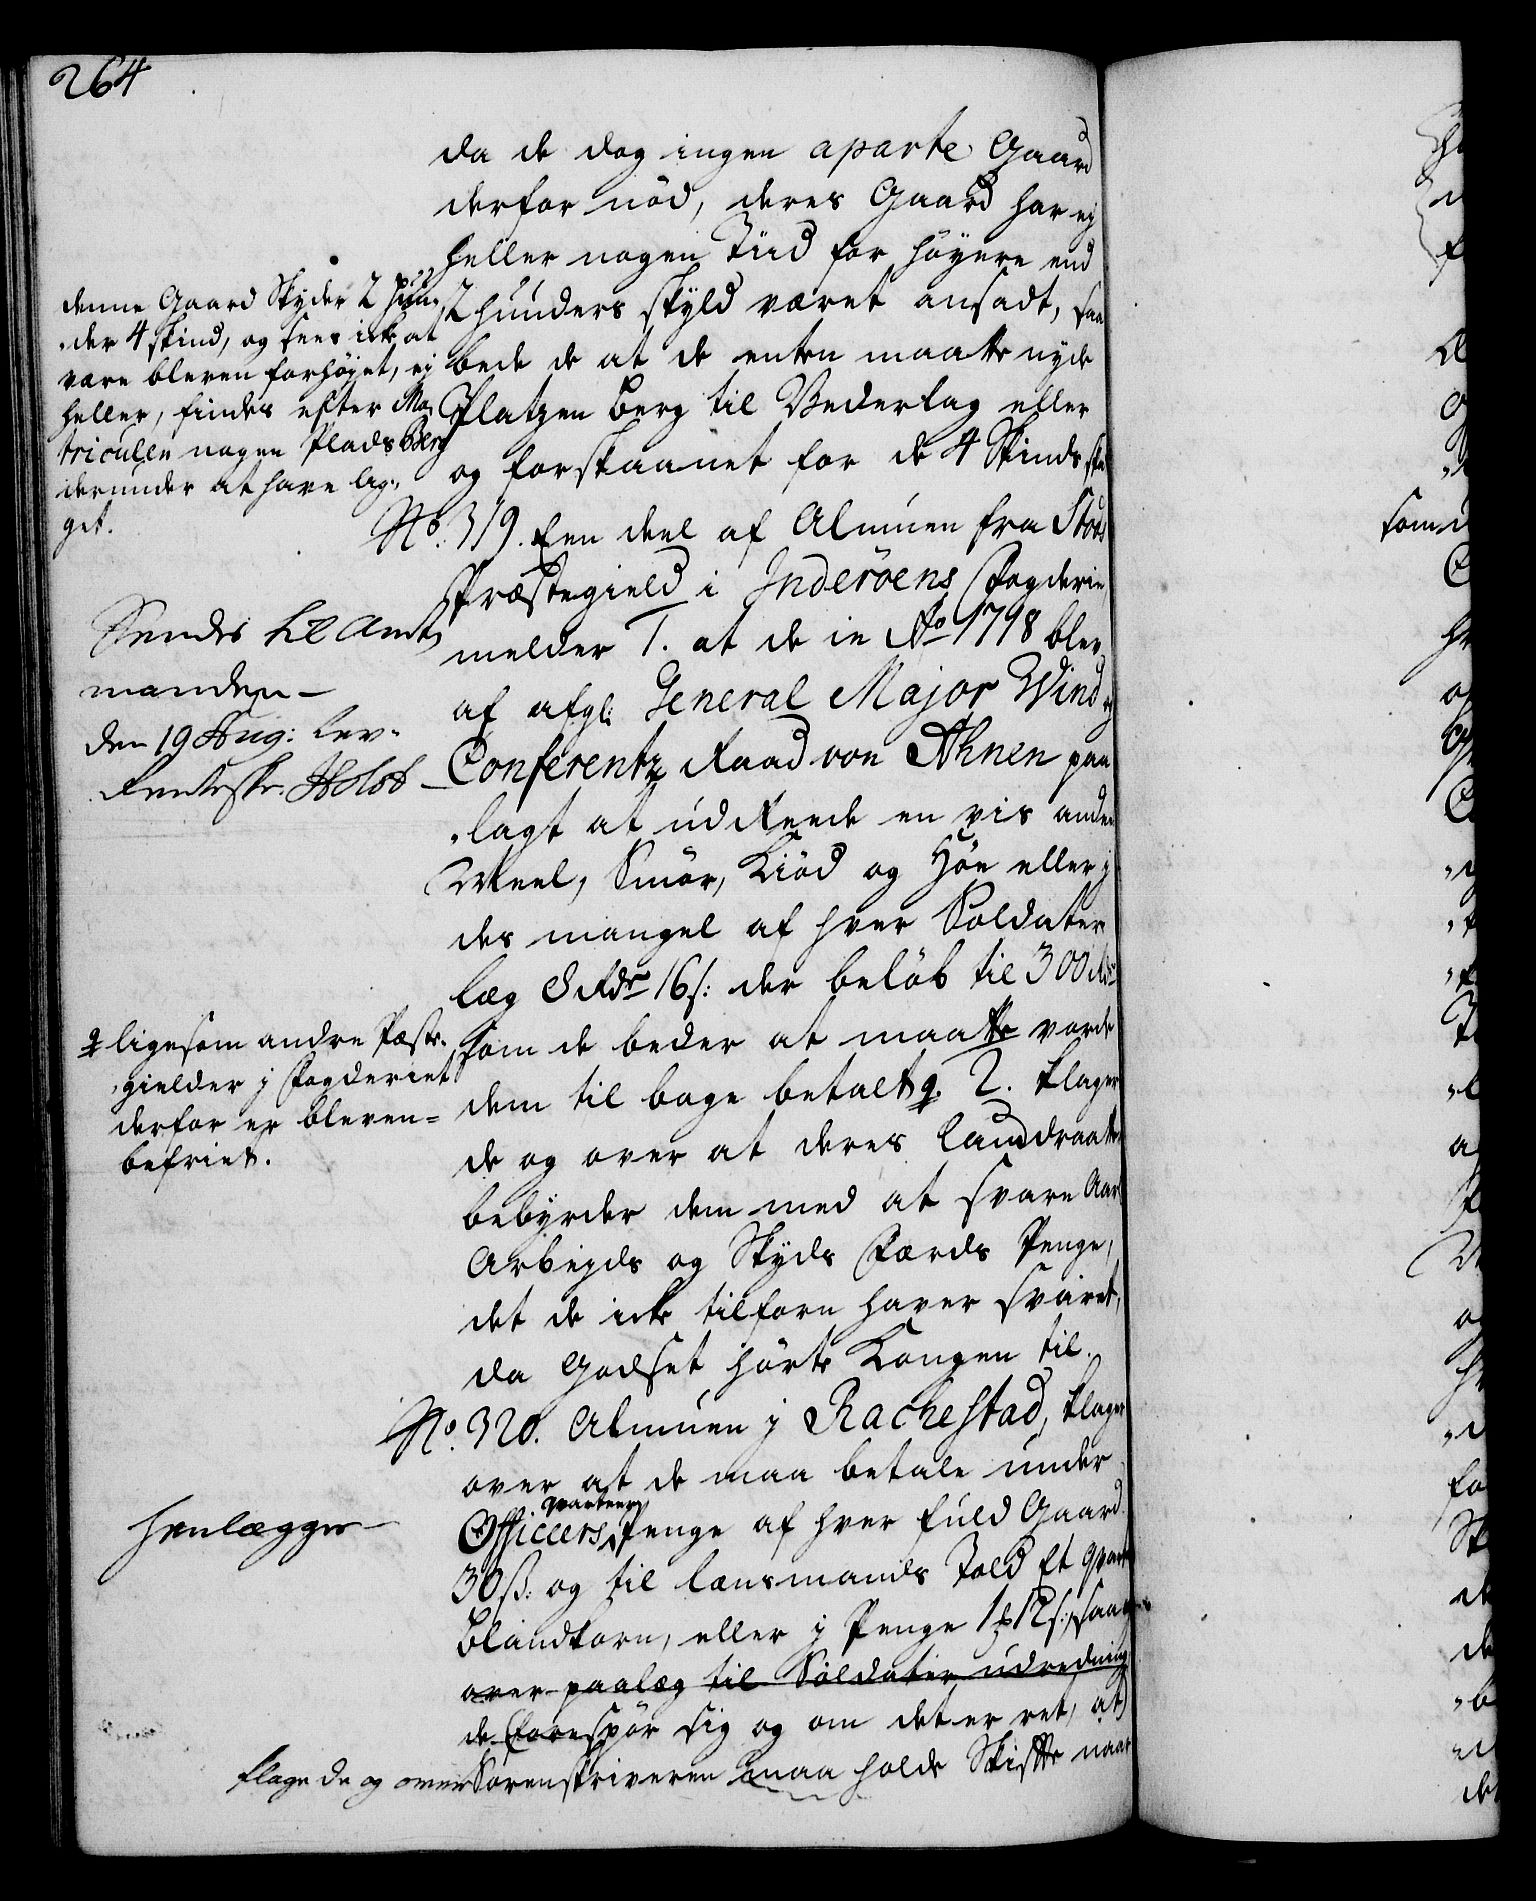 264
da de dog ingen aparte Gaard
derfor nöd, deres Gaard har ej
heller nogen Tiid for höyere end
2 hunders skyld været ansadt, saa
bede de at de enten maatte nyde
Platzen Berg til Vederlag eller
og forskaanet for de 4 Skinds
denne Gaard Skyder 2 hun¬
¬der 4 skind, og sees icke at
være bleven forhöyet, ej
heller, findes efter Ma¬
triculen nogen Plads Berg
derunder at have lig¬
get.
No. 319. Een deel af Almuen fra Stods
Præstegield i Inderöens Fogderie
melder 1. at de in Ao 1718 blev
af afgl: General Major Wind og
Conferentz Raad von Ahnen paa
¬lagt at udreede en vis anden
Meel, Smör, Kiöd og Höe eller j
des mangel af hver Soldater
læg 8 Rdr 16 s: der belöb til 300 Rdr
som de beder at maatte vorde
dem til bage betalt ♀. 2. klager
de og over at deres Landdraatt
bebyrder dem med at svare Aarl
Arbejds og Skyds Færds Penge,
det de icke tilforn haver svaret,
da Godset hörte Kongen til.
Sendes til Amt
manden –
den 19 Aug: lev.
Renteskr. Holst –
♀ ligesom andre Præste¬
¬gielder j Fogderiet
derfor er bleven =
befriet.
No. 320. Almuen j Rachestad, klager
over at de maa betale under
Officeers qvarteer Penge af hver fuld Gaard
30 s: og til Lænsmands Told Et qvart
blandkorn, eller j Penge 1 12 s:, saa
over paalæg til Soldater udredning
de forespör sig og om det er ret, at
klage de og over Sorenskriveren maa holde Skiffte naar
Henlægges –